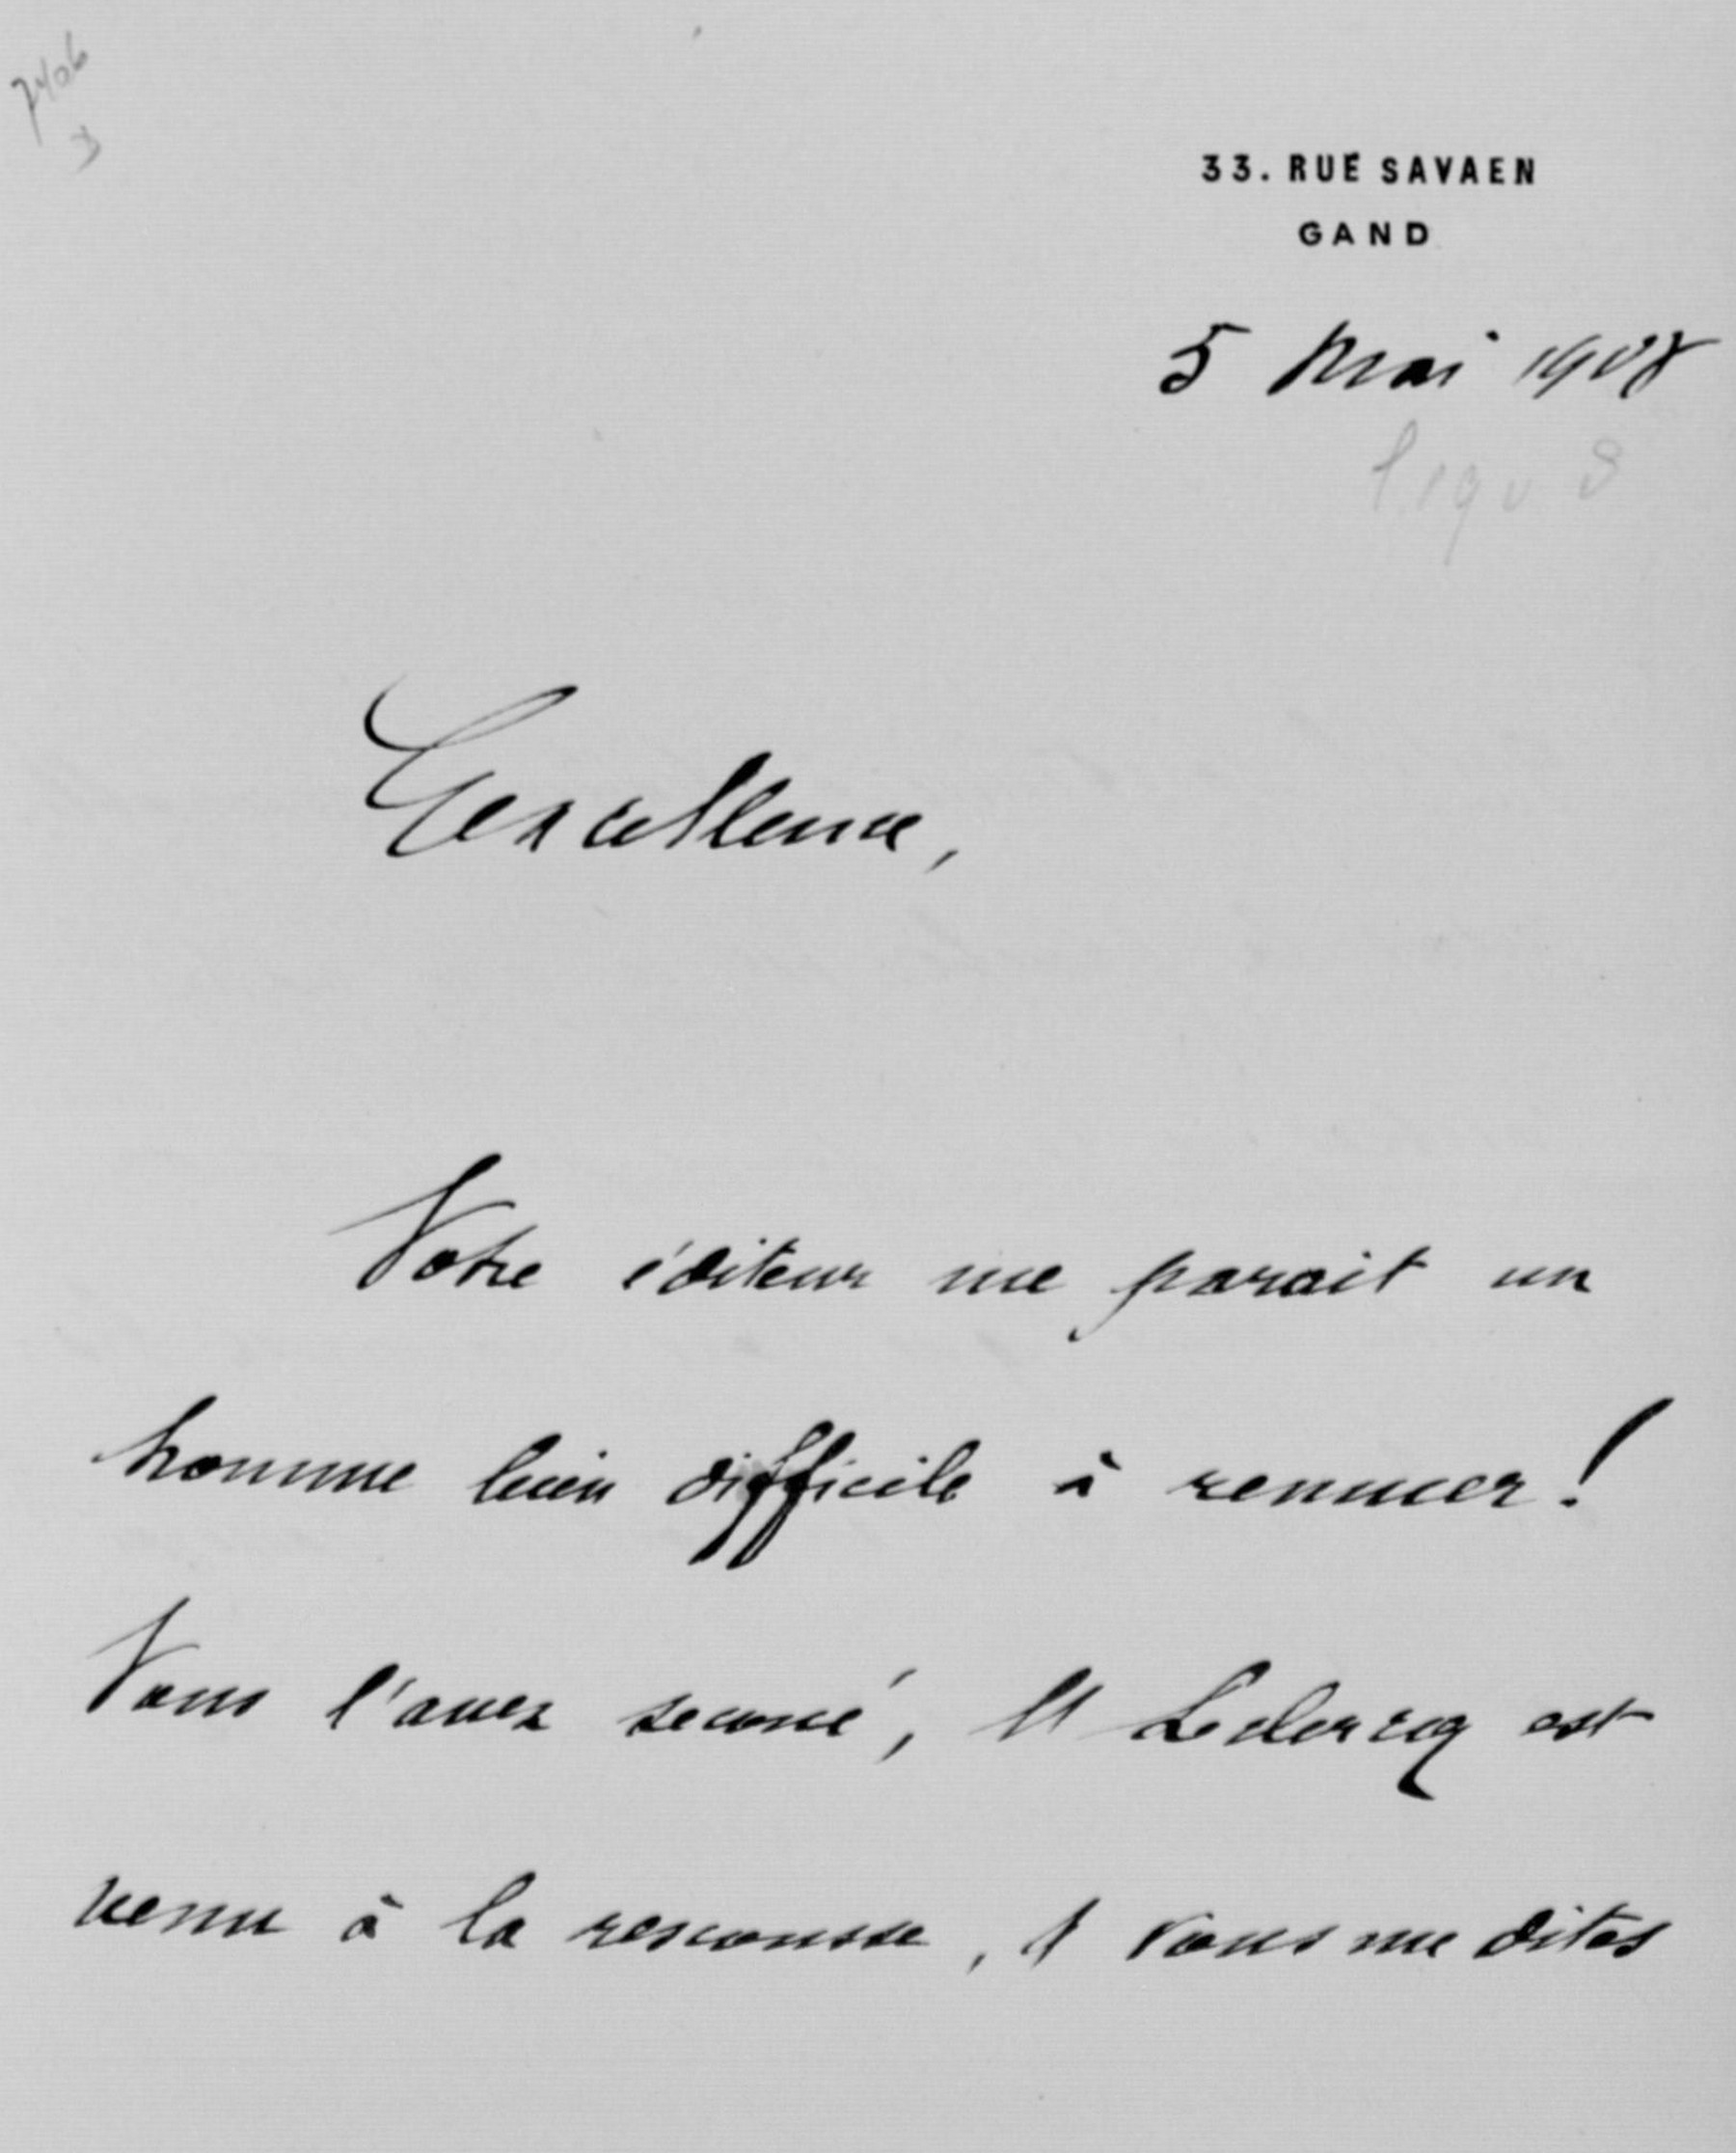 7406
33. RUE SAVAEN
GAND
5 Mai 1908
1908
Excellence,
Votre éditeur me parait un
homme bien difficile à remuer!
Vous l'avez secoué, M Leclercq est
venu à la rescousse, & vous me dites